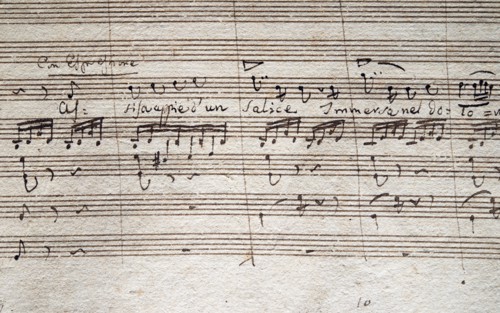 Con Espressione
As= sisa appie d'un Salice Immersa nel do= lo =
10